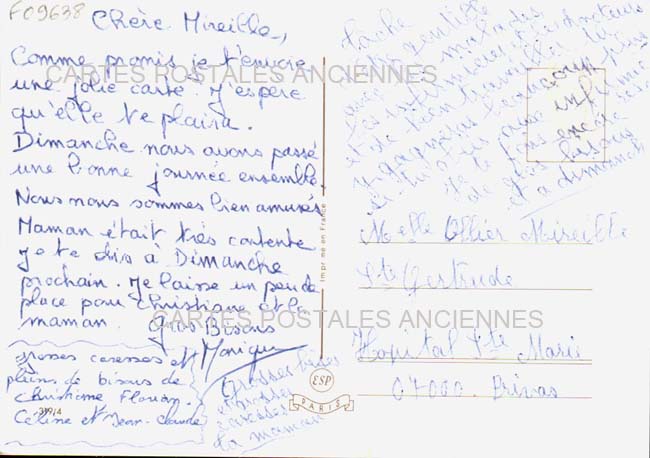 F09638
Chère Mireille,
Comme promis je t'envoie
une jolie carte. J'espère
qu'elle te plaira.
Dimanche nous avons passé
une bonne journée ensemble.
Nous nous sommes bien amusés
Maman était très contente
Je te dis à Dimanche
prochain. Je laisse un peu de
place pour Christiane et la
maman. Gros Bisous
Monique
grosses caresses et
pleins de bisous de
Christiane Florian.
Céline et Jean-Claude
319/4
Grosses bises
et grosses
caresses
ta maman
Tâche
gentille
avec malades
les infirmières et
et de bien travailler
beaucoup
plus
de te
encore
de gros bisous
et à dimanche
CARTES POSTALES ANCIENNES
Imprimé en France
Melle Ollier Mireille
Ste Gertrude
CARTES POSTALES ANCIENNES
Hopital Ste Marie
07000. Privas
ESP
PARIS